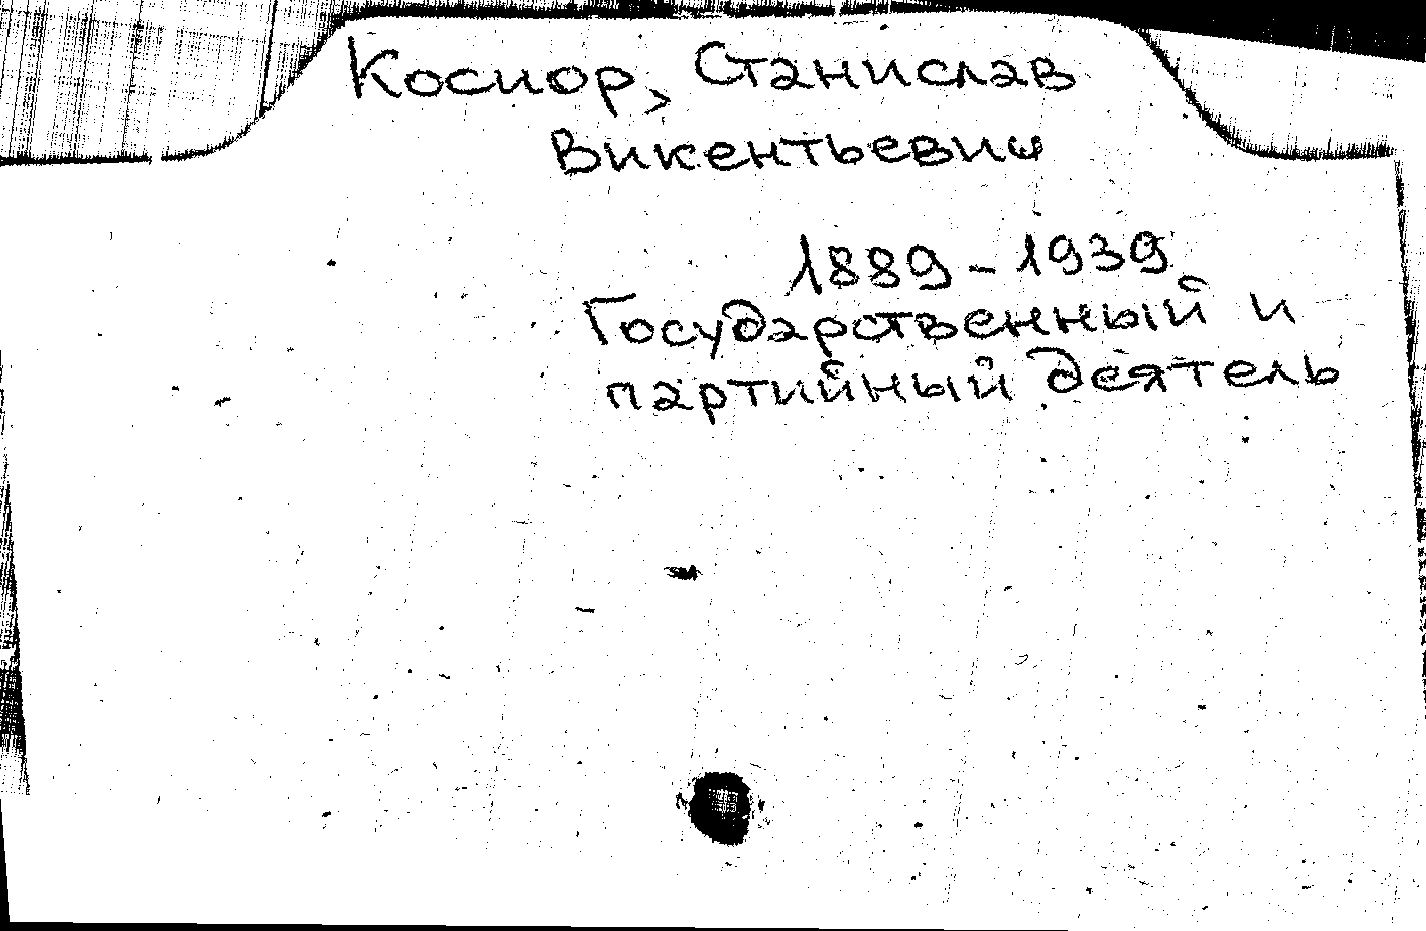 Косиор, Станислав
Викентьевич
1889-1939
Государственный и
партийный деятель